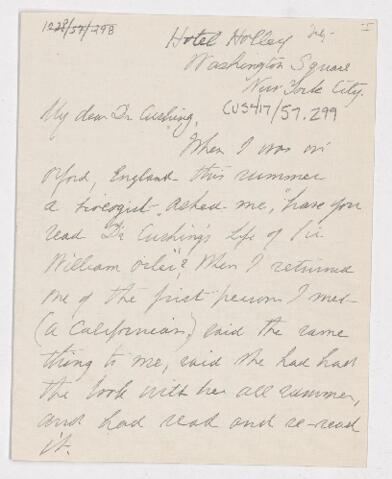 1228/57/298
I
Hotel Holley
Washington Square
New York City.
CUS417/57.299
My dear Dr Cushing,
When I was in
Oxford, England this summer
a biologist asked me, "have you
read Dr Cushing's life of Sir
William Osler"? When I returned
one of the first persons I met
(a Californian), said the same
thing to me, said she had had
the book with her all summer,
and had read and re-read
it.